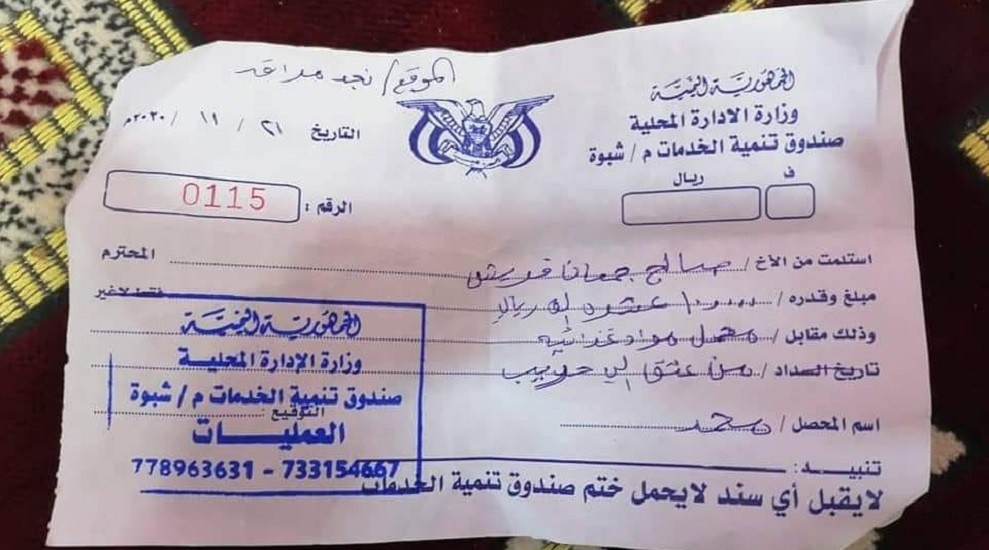 الموقع / نجد مرقد
الجمهورية اليمنية
وزارة الإدارة المحلية
صندوق تنمية الخدمات م / شبوة
التاريخ ٢١ / ١١ / ٢٠٢٠م
ف ريال
الرقم : 0115
استلمت من الأخ / صالح جمعان المحترم
مبلغ وقدره / ١٠٠٠٠ عشرة الف ريال فقط لاغير
وذلك مقابل / محمل مواد غذائيه
تاريخ السداد / من عتق الى حريب
اسم المحصل / محمد
التوقيع :
الجمهورية اليمنية
وزارة الإدارة المحلية
صندوق تنمية الخدمات م / شبوة
العمليات
778963631 - 733154667
تنبيه :
لايقبل أي سند لايحمل ختم صندوق تنمية الخدمات